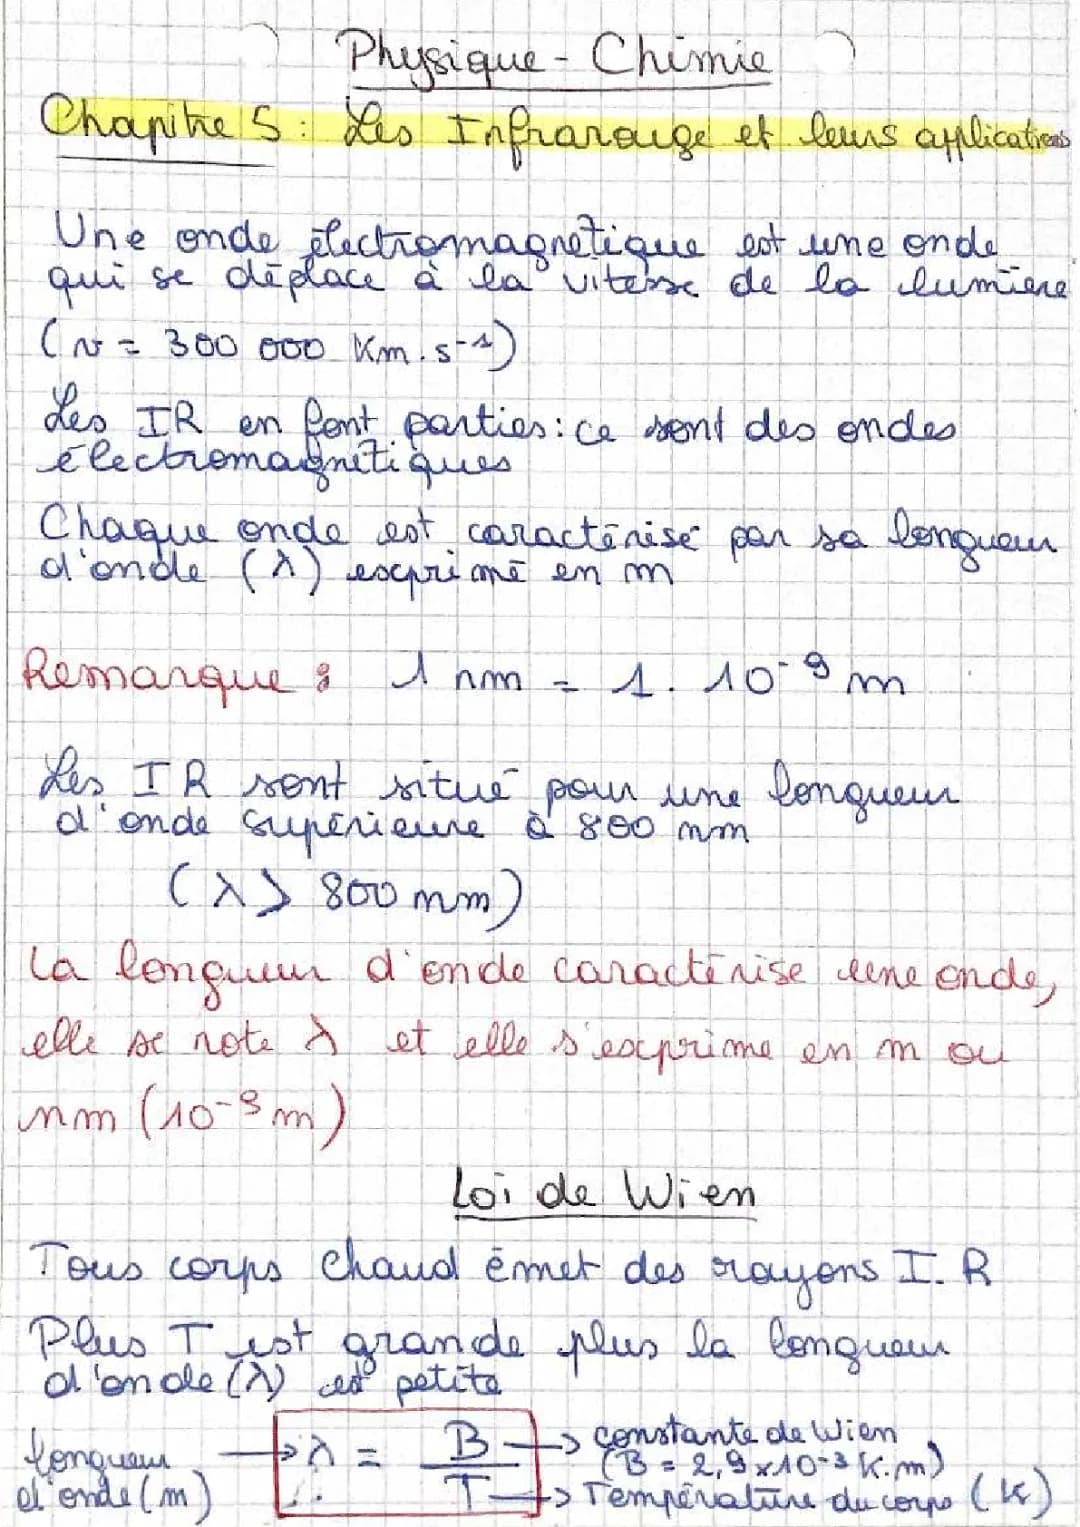 Physique - Chimie
Chapitre 5 : Les Infrarouge et leurs applications
Une onde électromagnétique est une onde
qui se déplace à la vitesse de la lumière
(v = 300 000 Km.s⁻¹)
Les IR en font parties : ce sont des ondes
électromagnétiques
Chaque onde est caractérisé par sa longueur
d'onde (λ) exprimé en m
Remarque : 1 nm = 1. 10⁻⁹ m
Les IR sont situé pour une longueur
d'onde supérieure à 800 nm
(λ > 800 nm)
La longueur d'onde caractérise une onde,
elle se note λ et elle s'exprime en m ou
nm (10⁻⁹ m)
Loi de Wien
Tous corps chaud émet des rayons I.R
Plus T est grande plus la longueur
d'onde (λ) est petite
longueur d'onde (m) → λ = B / T
B → constante de Wien
(B = 2,9 x 10⁻³ K.m)
T → Température du corps (K)